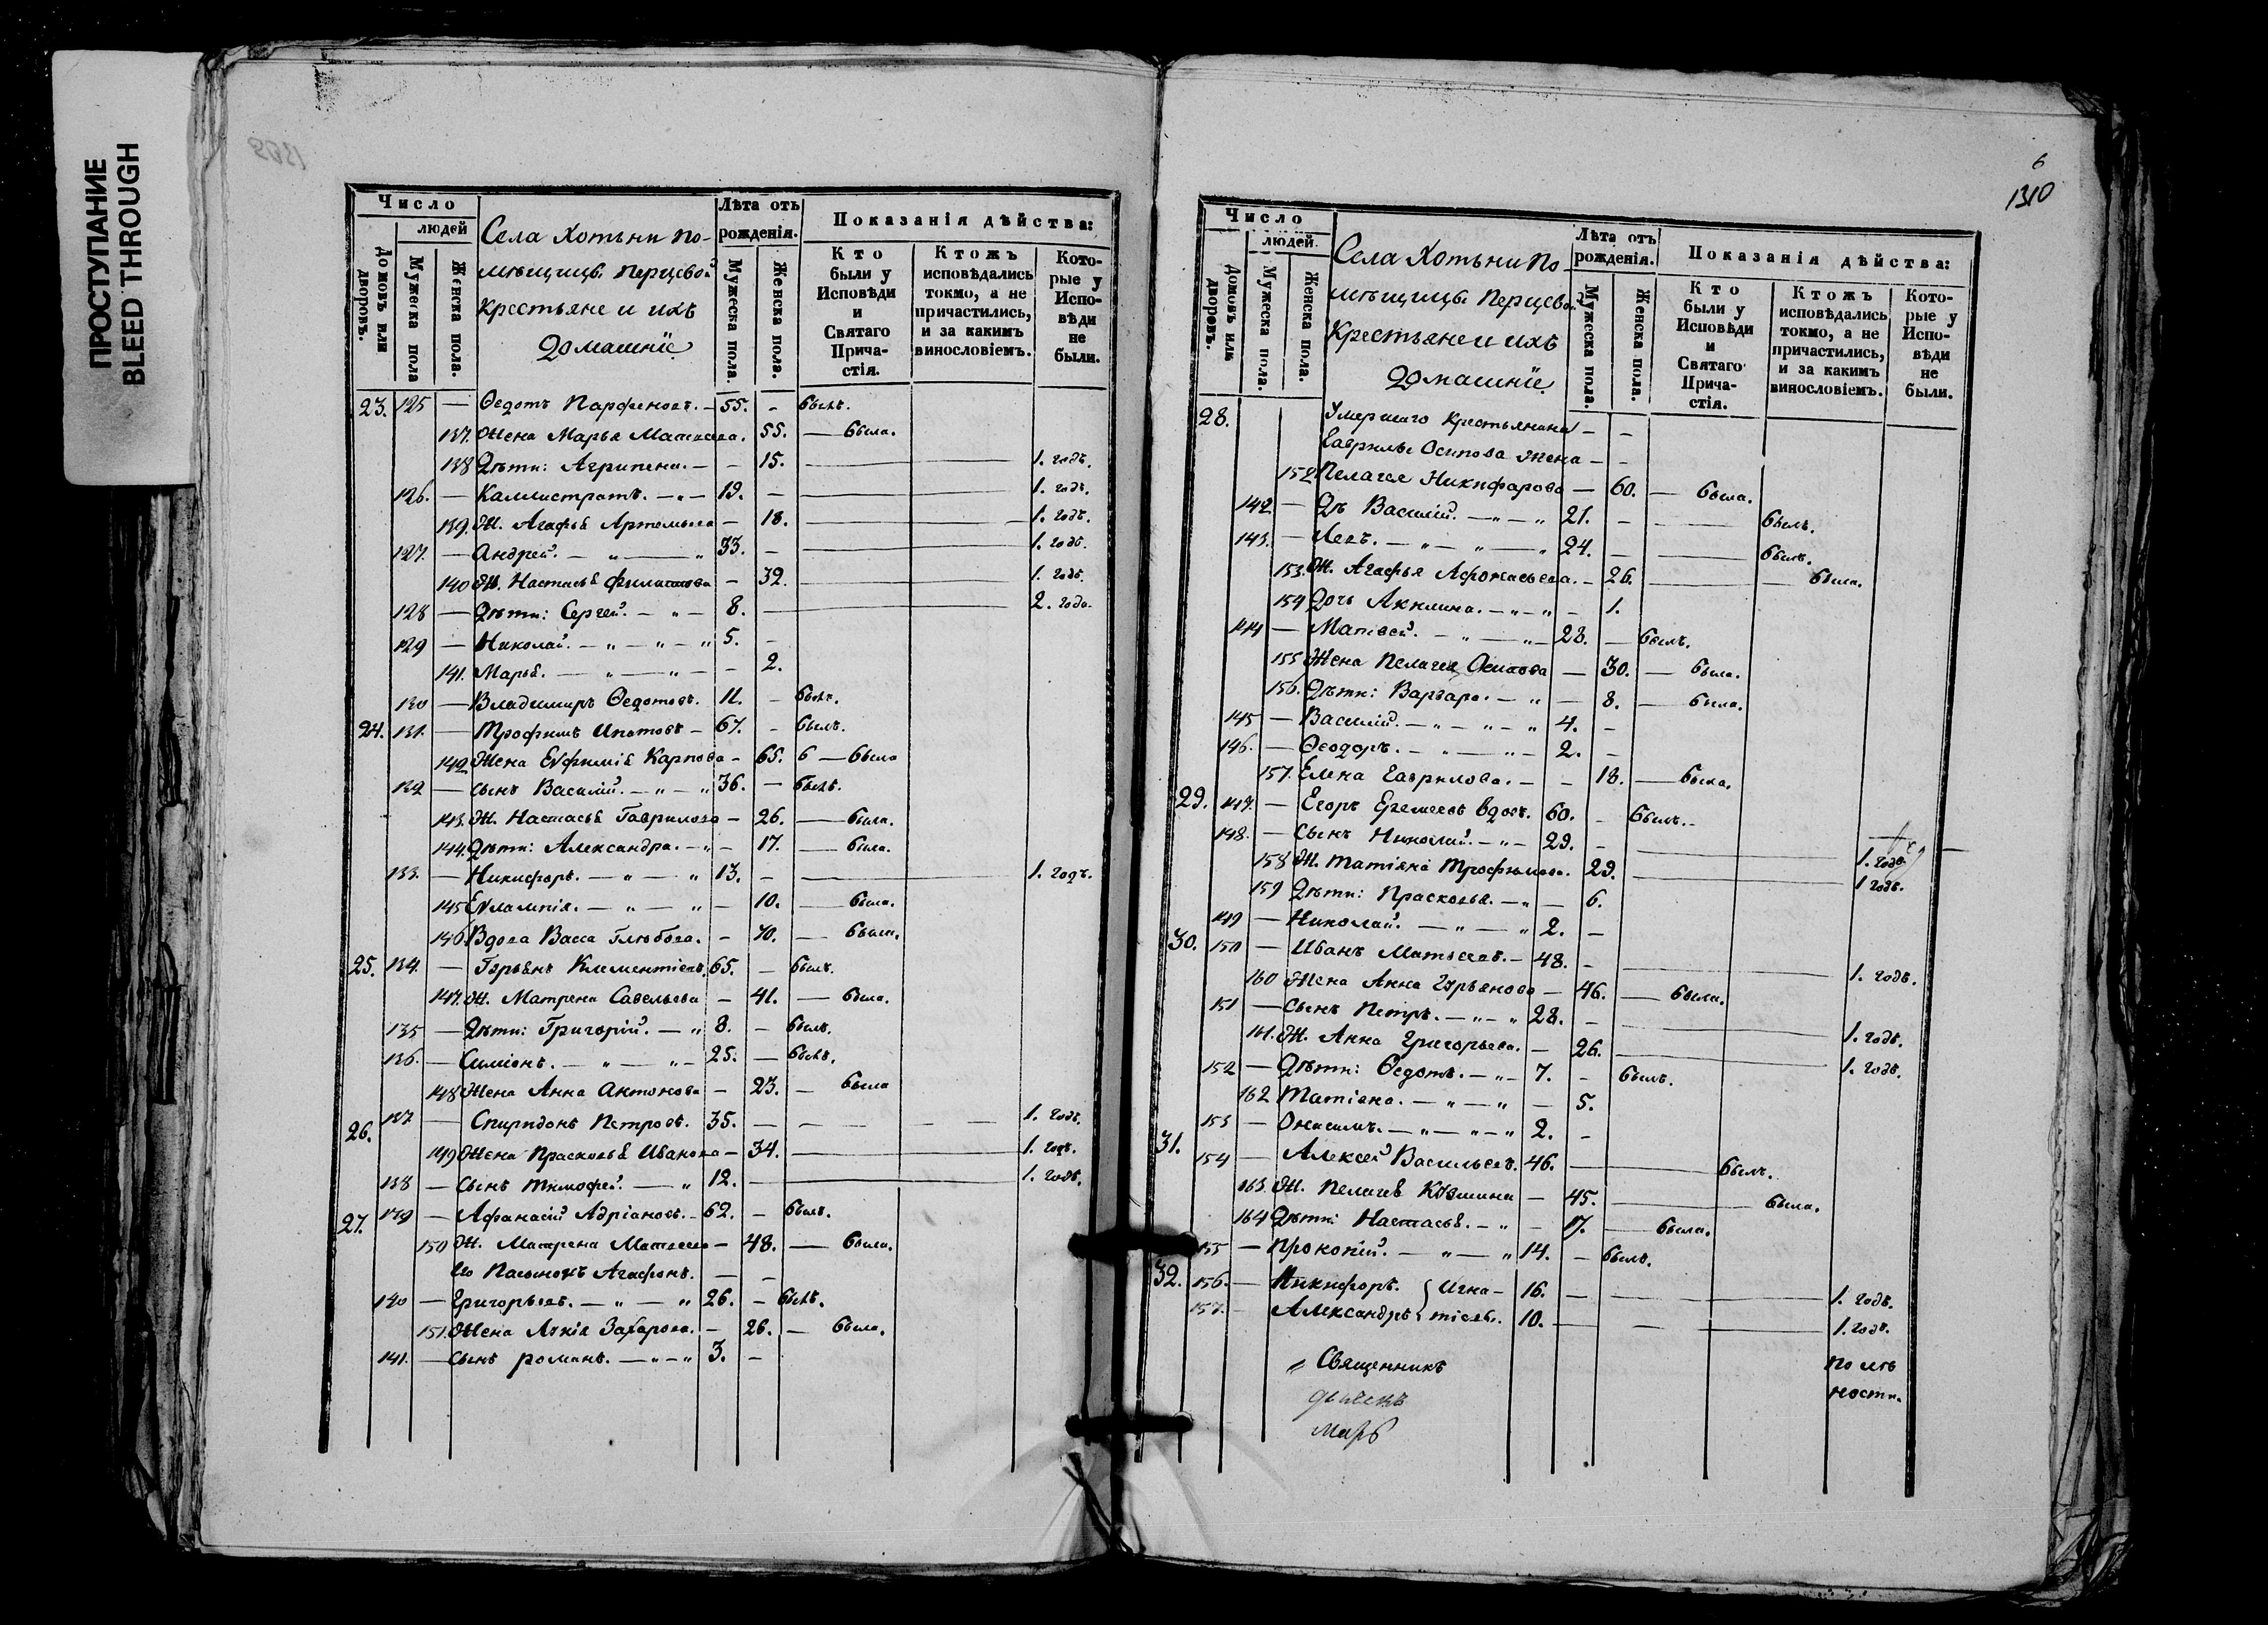 ПРОСТУПАНИЕ
BLEED THROUGH
Число
людей
Домовъ или дворовъ.
Мужеска пола
Женска пола.
Села Хотыни по-
мѣщицы Перцевой
крестьяне и ихъ
домашніе
Лѣта отъ рожденія.
Мужеска пола.
Женска пола.
Показанія дѣйства:
Кто были у Исповѣди и Святаго Прича-стія.
Ктожъ исповѣдались токмо, а не причастились, и за какимъ винословіемъ.
Кото-рые у Испо-вѣди не были.
23. 125 — Ѳедотъ Парфеновъ. — 55. - былъ.
137. Жена Марья Матвѣева. 55. — была.
138 Дѣти: Агрипена. — - 15. — 1. годъ.
126. — Каллистратъ. — „ — 19. - — 1. годъ.
139. Ж. Агафья Артемьева — 18. — 1. годъ.
127. — Андрей. — „ — „ 33. - — 1. годъ.
140 Ж. Настасья Филипова — 32. — 1. годъ.
128 — Дѣти: Сергей. — „ — 8. — 2. года.
129 — Николай. — „ — „ — „ 5. -
141. Марья. — „ — „ — - 2.
130 — Владимиръ Ѳедотовъ. 11. - былъ.
24. 131. — Трофимъ Ипатовъ — 67. - былъ.
142 Жена Евфимія Карпова — 65. 6 — была
132 — сынъ Василій. — „ — „ 36. — былъ.
143. Ж. Настасья Гаврилова — 26. — была.
144. Дѣти: Александра. — „ — 17. — была.
133. — Никифоръ. — „ — „ 13. - — 1. годъ.
145 Евлампія. — „ — „ — 10. — была.
146. Вдова Васса Глебова. — 70. — была.
25. 134. — Гурьянъ Клементіевъ. 65. — былъ.
147. Ж. Матрена Савельева — 41. — была.
135 — Дѣти: Григорій. — „ 8. - былъ.
136. — Симіонъ. — „ — „ — 25. — былъ.
148 Жена Анна Антонова — 23. — была
26. 137 — Спиридонъ Петровъ. 35. — 1. годъ.
149 Жена Прасковья Иванова — 34. — 1. годъ.
138 — Сынъ Тимофей. — „ 12. — 1. годъ.
27. 139 — Афанасій Адріановъ. — 62. — былъ.
150 Ж. Матрена Матвеева — 48. — была.
Его Пасынокъ Агафонъ. — —
140 — Григорьевъ. — „ — „ 26. — былъ.
151. Жена Лукія Захарова. — 26. — была.
141. — Сынъ Романъ. — „ — „ 3. —
6
1310
Число
людей.
Домовъ или дворовъ.
Мужеска пола.
Женска пола.
Села Хотыни По-
мѣщицы Перцевой
Крестьяне и ихъ
домашніе
Лѣта отъ рожденія.
Мужеска пола.
Женска пола.
Показанія дѣйства:
Кто были у Исповѣди и Святаго Прича-стія.
Ктожъ исповѣдались токмо, а не причастились, и за какимъ винословіемъ.
Кото-рые у Испо-вѣди не были.
28. Умершаго крестьянина — -
Гаврилы Осипова жена — -
152 Пелагея Никифарова — 60. — была.
142 — Дѣ Василій. — „ — „ 21. - — былъ.
143. — Левъ. — „ — „ — „ 24. - — былъ.
153. Ж. Агафья Афонасьева. — 26. — была.
154 Дочь Акилина. — „ — „ — 1.
144 — Матвей. — „ — „ — 28. — былъ.
155 Жена Пелагея Осипова — 30. — была.
156. Дѣти: Варвара. — „ — 8. — была.
145 — Василій. — „ — „ — „ 4. -
146. — Ѳеодоръ. — „ — „ — 2. -
157. Елена Гаврилова. — - 18. — была.
29. 147. — Егоръ Еремеевъ вдов. 60. - былъ. -
148. — Сынъ Николай. — „ — 29. - — 1. годъ
158 Ж. Татіана Трофимова. 29. — 1 годъ.
159 Дѣти: Прасковья. — „ — 6.
149 — Николай. — „ — „ 2. -
30. 150 — Иванъ Матвеевъ. — 48. - — 1. годъ.
160 Жена Анна Гурьянова — 46. — была.
151 — Сынъ Петръ. — „ — „ 28. - — 1. годъ.
161. Ж. Анна Григорьева. — 26. — 1. годъ.
152 — Дѣти: Ѳедотъ. — „ — 7. - былъ.
162 Татіана. — „ — „ — 5.
153 — Онисимъ. — „ — „ — „ 2. -
31. 154 — Алексей Васильевъ. 46. — былъ.
163. Ж. Пелагея Козмина — 45. — была.
164 Дѣти: Настасья. — „ — 17. — была.
155 — Прокопій. — „ — „ 14. — былъ.
32. 156. — Никифоръ. { Игна- 16. — 1. годъ.
157. — Александръ { тіевы. 10. — 1. годъ.
Священникъ
по лѣ
ности.